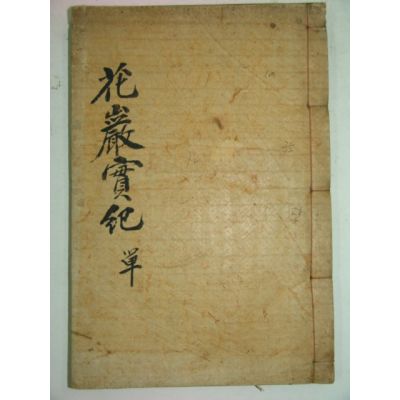 花巖實紀
單